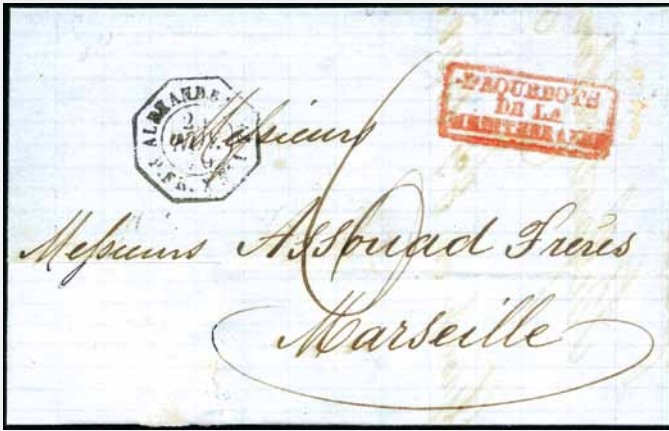 ALEXANDRIE
PAQUEBOTS
DE LA
MEDITERRANEE
Messieurs
6
Messieurs Assouad Frères
Marseille